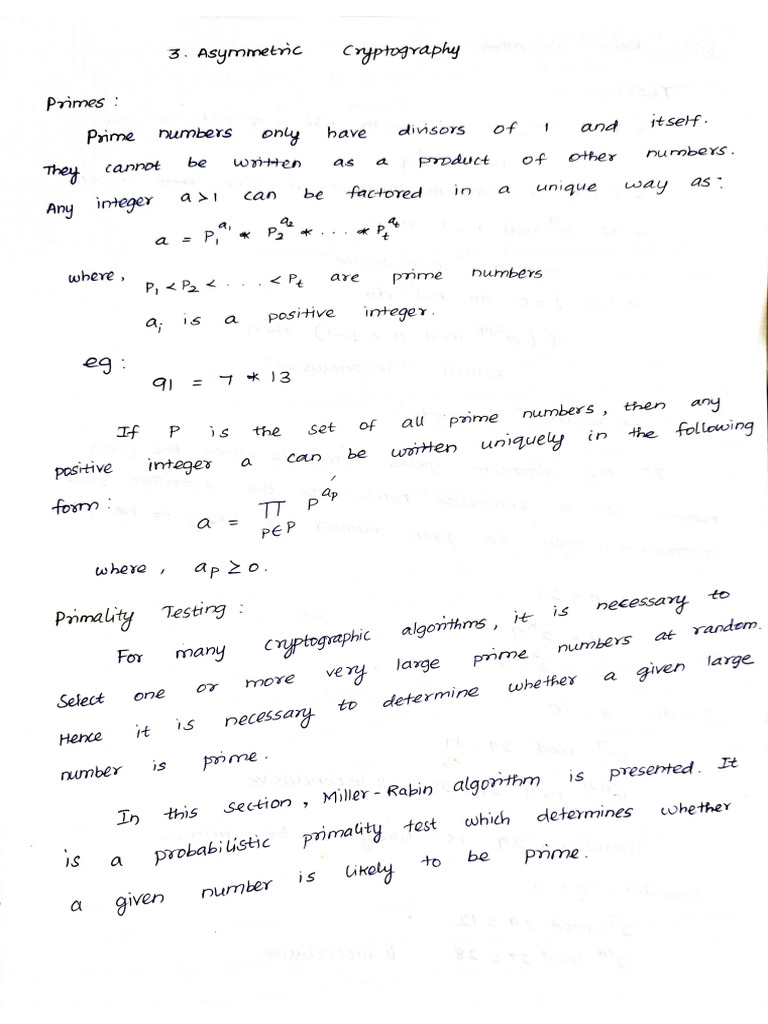 3. Asymmetric Cryptography
Primes :
Prime numbers only have divisors of 1 and itself.
They cannot be written as a product of other numbers.
Any integer a>1 can be factored in a unique way as:
a = P₁^a₁ * P₂^a₂ * . . . * Pₜ^aₜ
where, P₁ < P₂ < . . . < Pₜ are prime numbers
aᵢ is a positive integer.
eg :
91 = 7 * 13
If P is the set of all prime numbers, then any
positive integer a can be written uniquely in the following
form :
a = ∏ P^aₚ
P∈P
where, aₚ ≥ 0.
Primality Testing :
For many cryptographic algorithms, it is necessary to
select one or more very large prime numbers at random.
Hence it is necessary to determine whether a given large
number is prime.
In this section, Miller-Rabin algorithm is presented. It
is a probabilistic primality test which determines whether
a given number is likely to be prime.